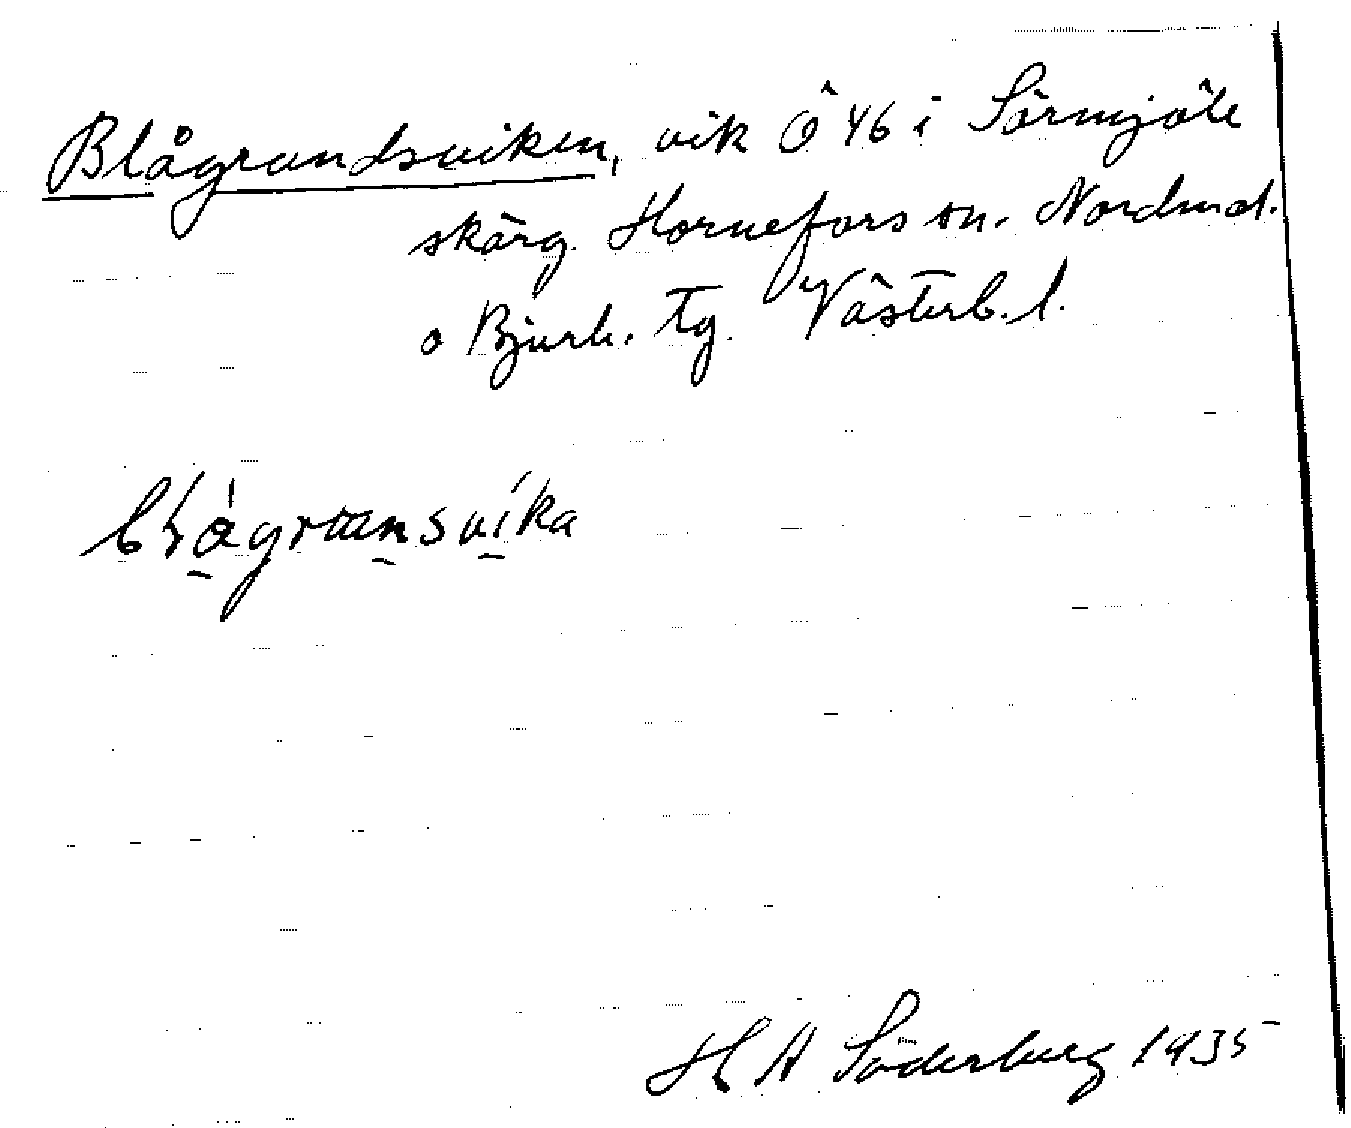 Blågrundsviken, vik Ö 46 i Sörmjöle
skärg. Hörnefors sn. Nordmal.
o Bjurh. tg. Västerb. l.
blågrunsvika
H A Söderberg 1935